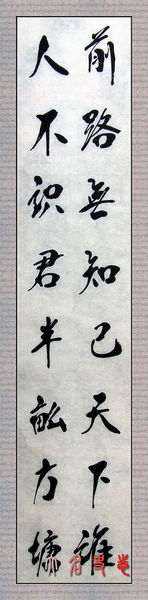 前路無知己天下誰
人不識君半畝方塘